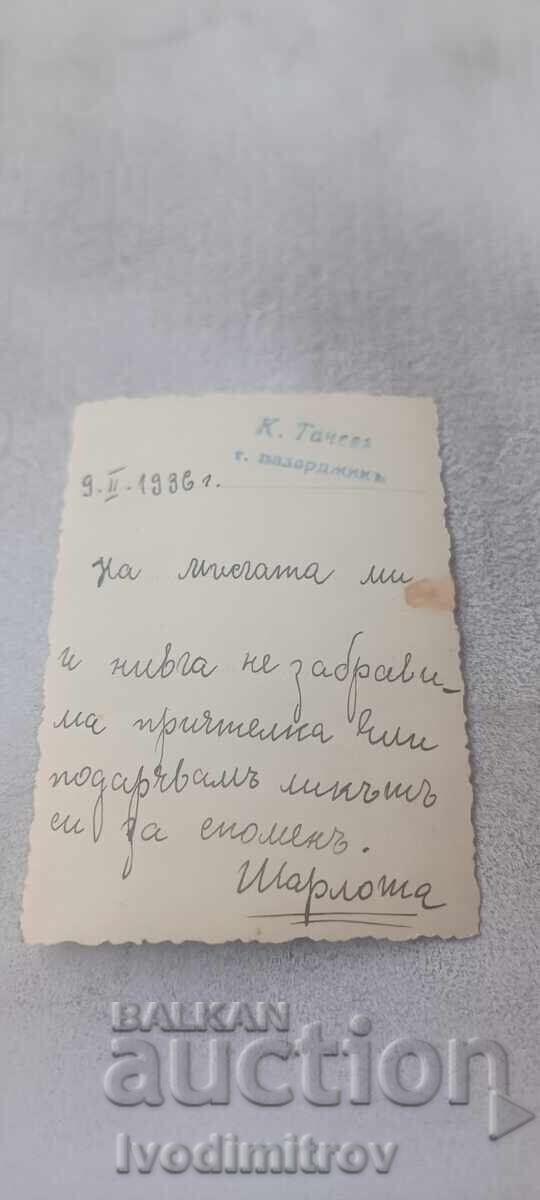 К. Тачевъ
г. Пазорджикъ
9.II.1936 г.
на милата ми
и нивга не забрави-
ма приятелка Ели
подарявамъ ликътъ
си за споменъ.
Шарлота
BALKAN
auction
Ivodimitrov